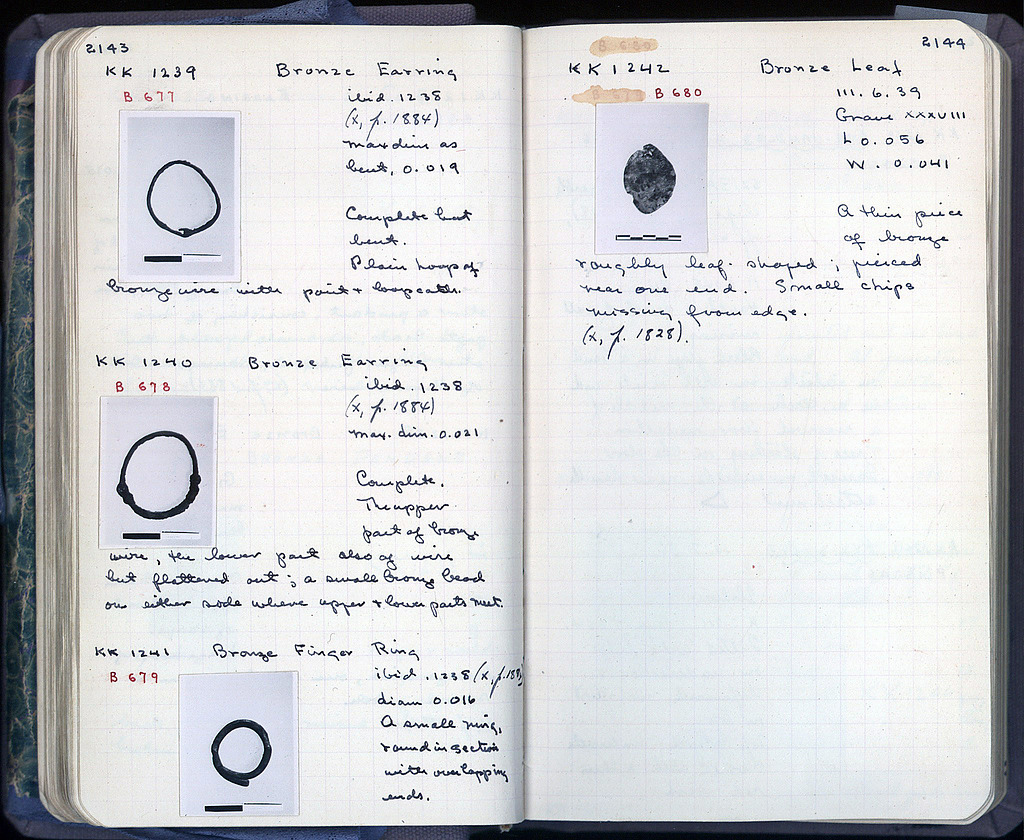 2143
KK 1239 Bronze Earring
B 677
ibid. 1238
(X, p. 1884)
max dim as
bent, 0.019
Complete but
bent.
Plain hoop of
bronze wire with point + loop catch.
KK 1240 Bronze Earring
B 678
ibid. 1238
(X, p. 1884)
max. dim. 0.021
Complete.
The upper
part of bronze
wire, the lower part also of wire
but flattened out; a small bronze bead
on either side where upper + lower parts meet.
KK 1241 Bronze Finger Ring
B 679
ibid. 1238 (X, p.
diam 0.016
A small ring,
round in section
with overlapping
ends.
B 680
2144
KK 1242 Bronze Leaf
B 680
III. 6. 39
Grave XXXVIII
L 0.056
W. 0.041
A thin piece
of bronze
roughly leaf-shaped; pierced
near one end. Small chips
missing from edge.
(X, p. 1828).